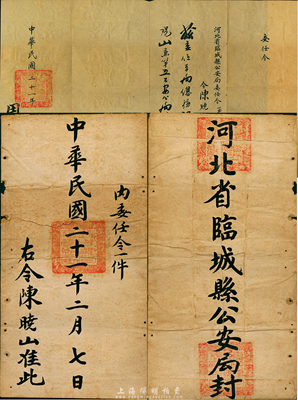 委任令
河北省臨城縣公安局委任令
令陳曉
茲委任
中華民國二十一年
河北省臨城縣公安局封
內委任令一件
中華民國二十一年二月七日
右令陳曉山准此
上海陽明拍賣